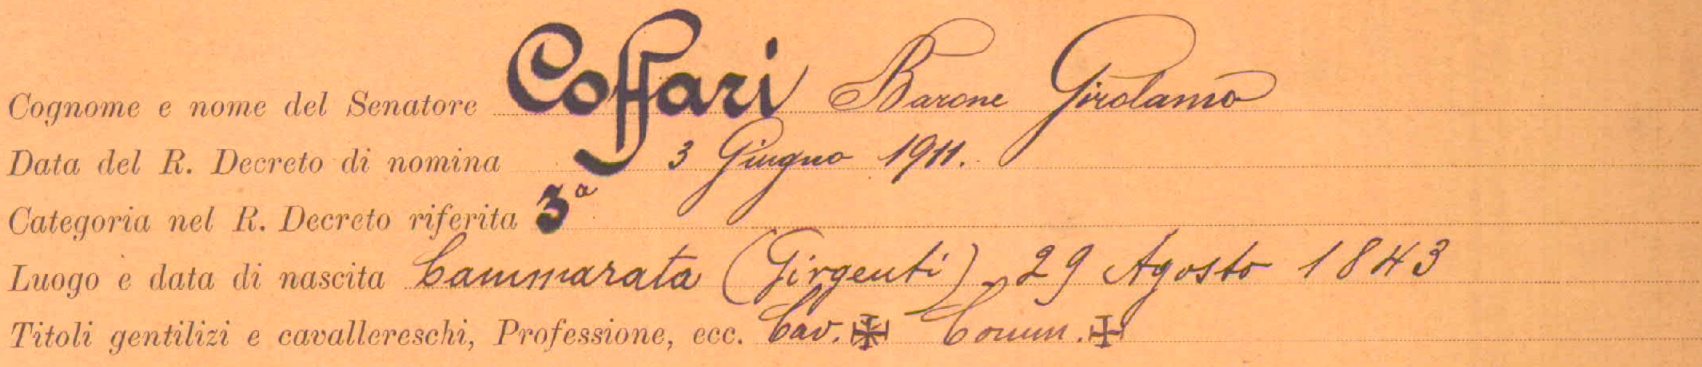 Cognome e nome del Senatore Coffari Barone Girolamo
Data del R. Decreto di nomina 3 Giugno 1911.
Categoria nel R. Decreto riferita 3ª
Luogo e data di nascita Cammarata (Girgenti) 29 Agosto 1843
Titoli gentilizi e cavallereschi, Professione, ecc. Cav. ✠ Comm. ✠